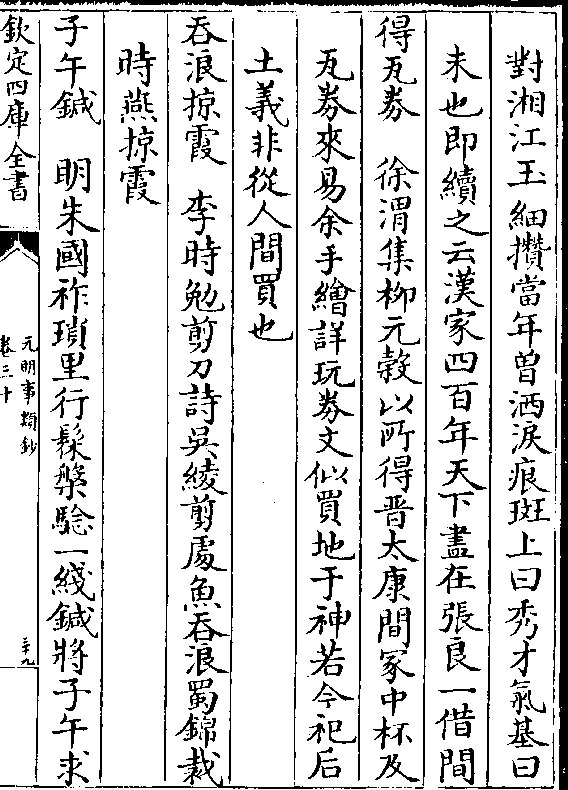 對湘江玉細攢當年曽洒淚痕斑上曰秀才氣基曰
未也即續之云漢家四百年天下盡在張良一借間
得瓦劵　徐渭集柳元榖以所得晋太康間冡中杯及
瓦劵來易余手繪詳玩劵文似買地于神若今祀后
土義非從人間買也
吞浪掠霞　李時勉剪刀詩吳綾剪處魚吞浪蜀錦裁
時燕掠霞
子午鍼　明朱國祚瑣里行髹槃騐一綫鍼將子午求
欽定四庫全書
元明事類鈔
卷三十
三十九